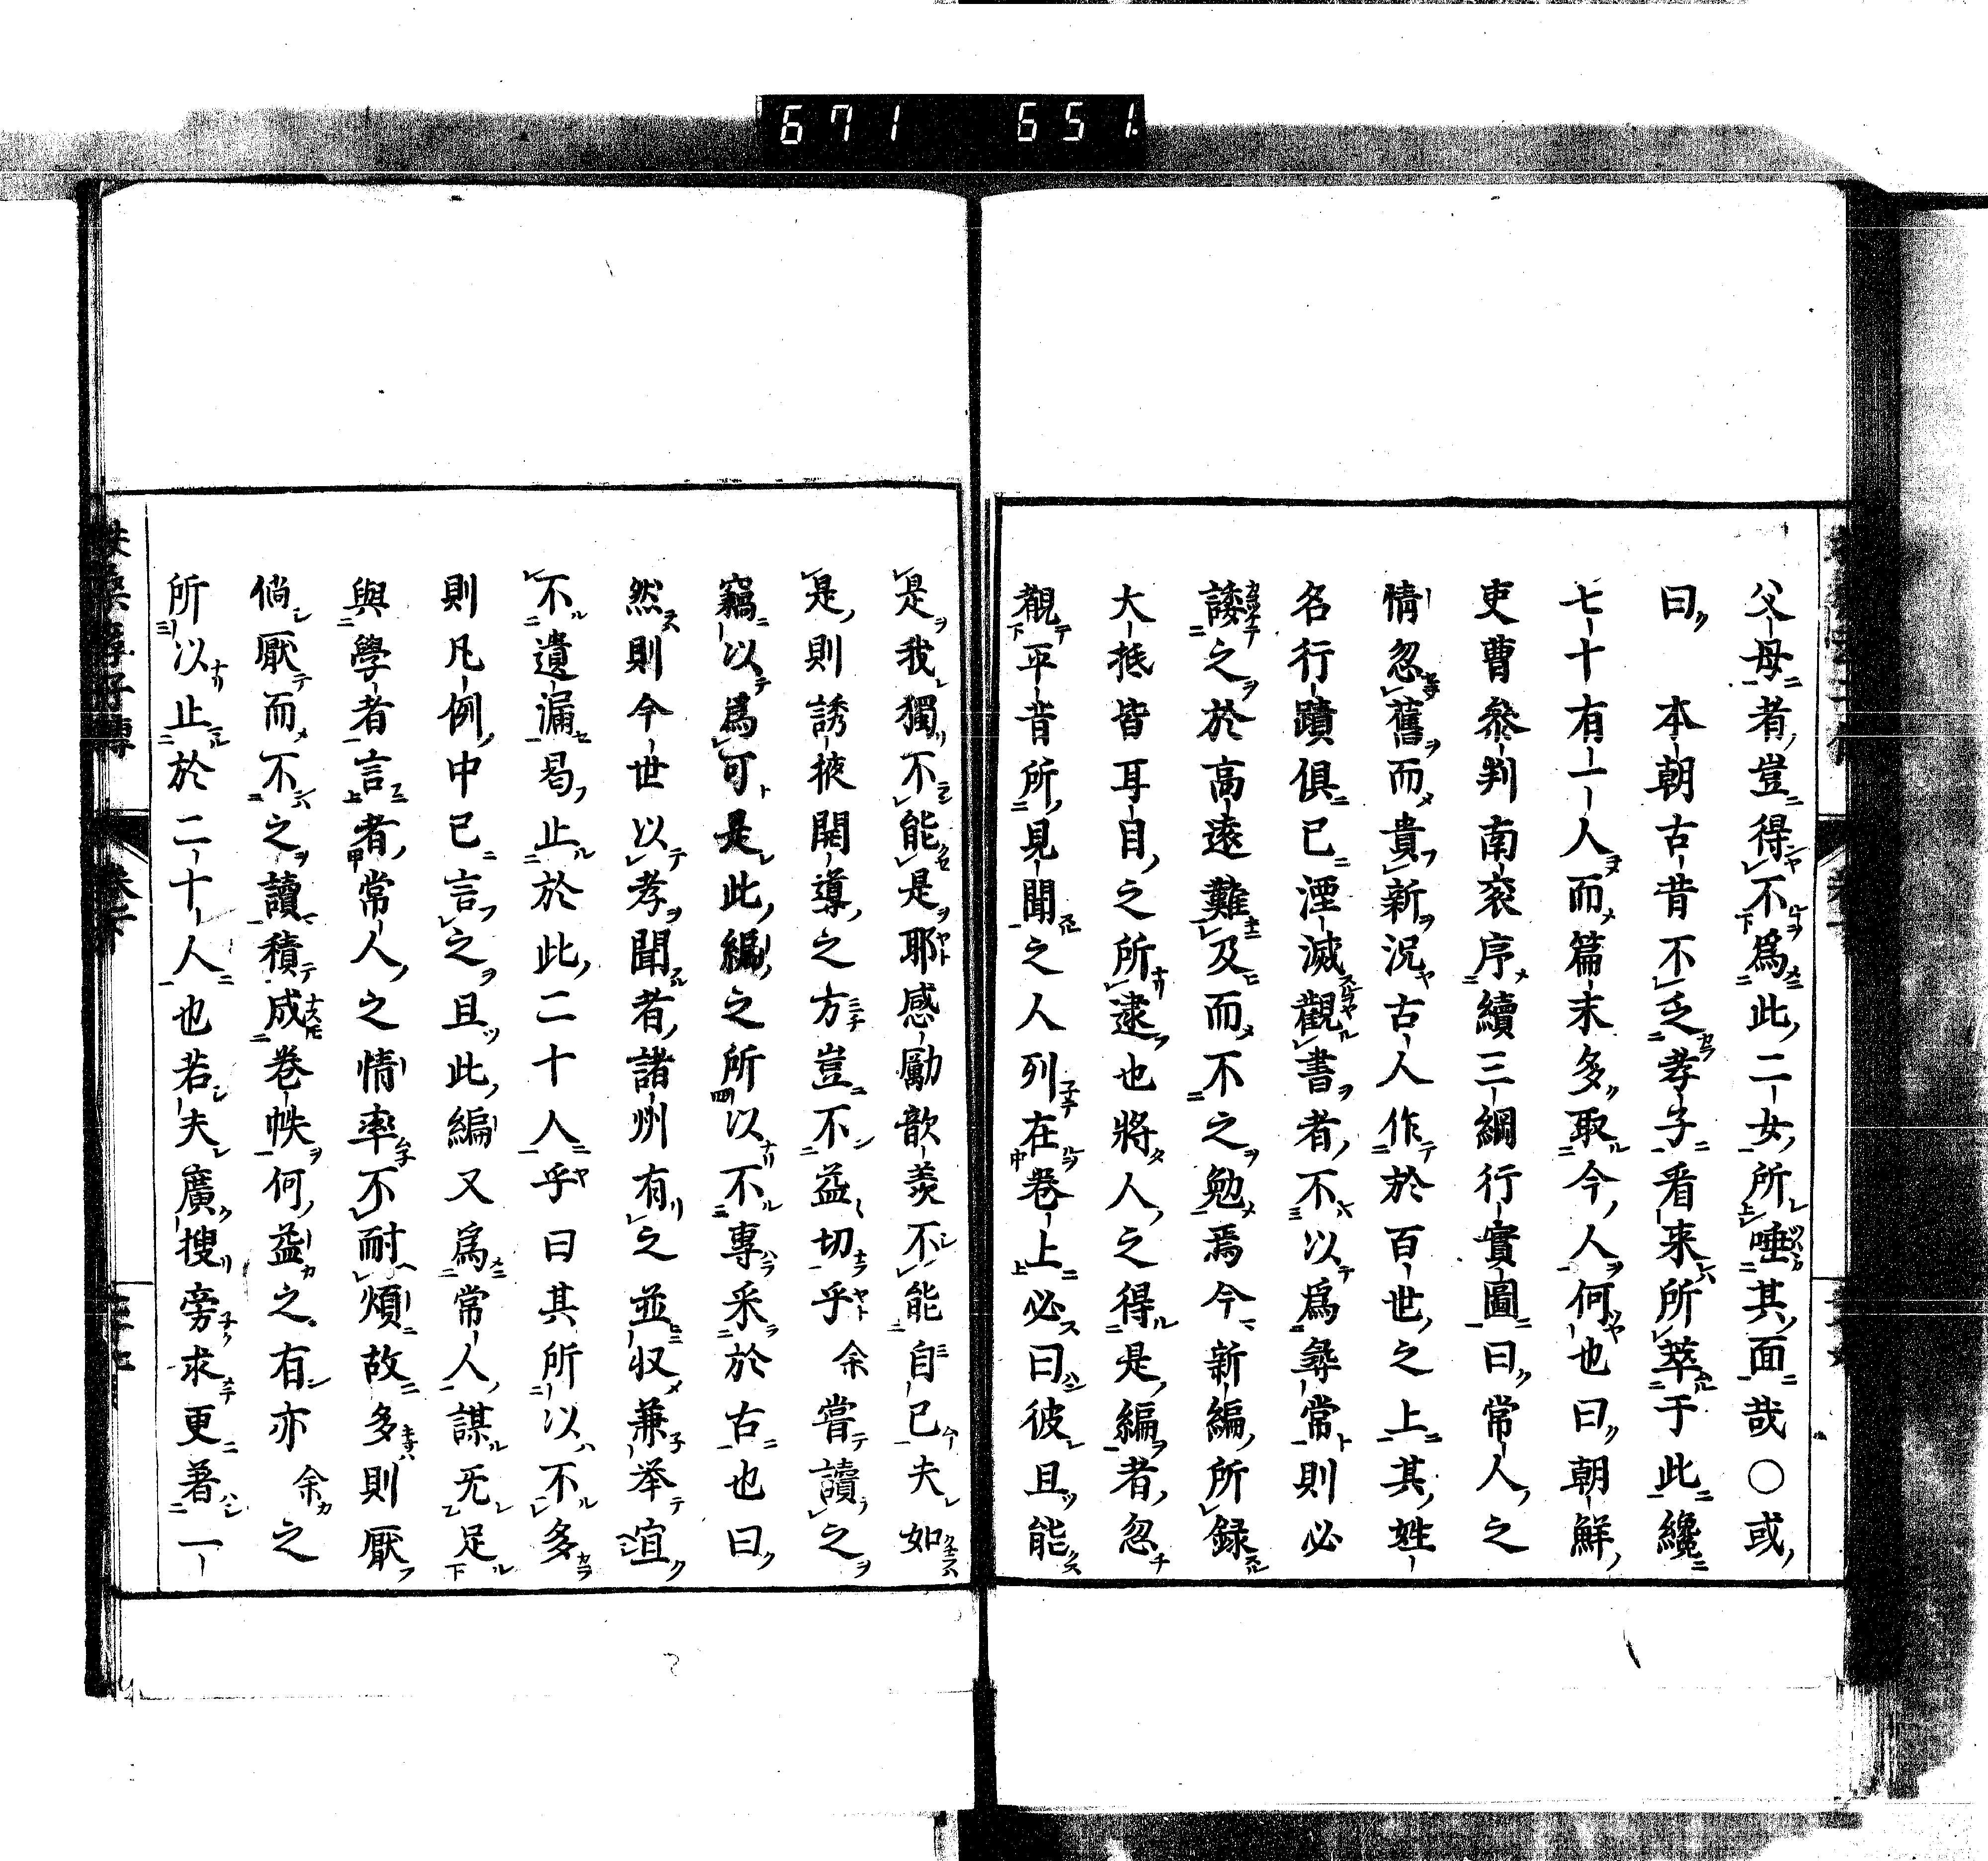 671 651
父母者豈得不爲此二女所唾其面哉○或
曰 本朝古昔不乏孝子看来所萃于此纔
七十有一人而篇末多取今人何也曰朝鮮
吏曹參判南衮序續三綱行實圖曰常人之
情忽舊而貴新況古人作於百世之上其姓
名行蹟俱已湮滅觀書者不以爲彝常則必
諉之於高遠難及而不之勉焉今新編所録
大抵皆耳目之所逮也將人之得是編者忽
觀平昔所見聞之人列在巻上必曰彼且能
是我獨不能是耶感勵歆羨不能自已夫如
是則誘掖開導之方豈不益切乎余嘗讀之
竊以爲可是此編之所以不專采於古也曰
然則今世以孝聞者諸州有之並収兼挙宜
不遺漏曷止於此二十人乎曰其所以不多
則凡例中已言之且此編又爲常人謀无足
與學者言者常人之情率不耐煩故多則厭
倘厭而不之讀積成巻帙何益之有亦余之
所以止於二十人也若夫廣搜旁求更著一